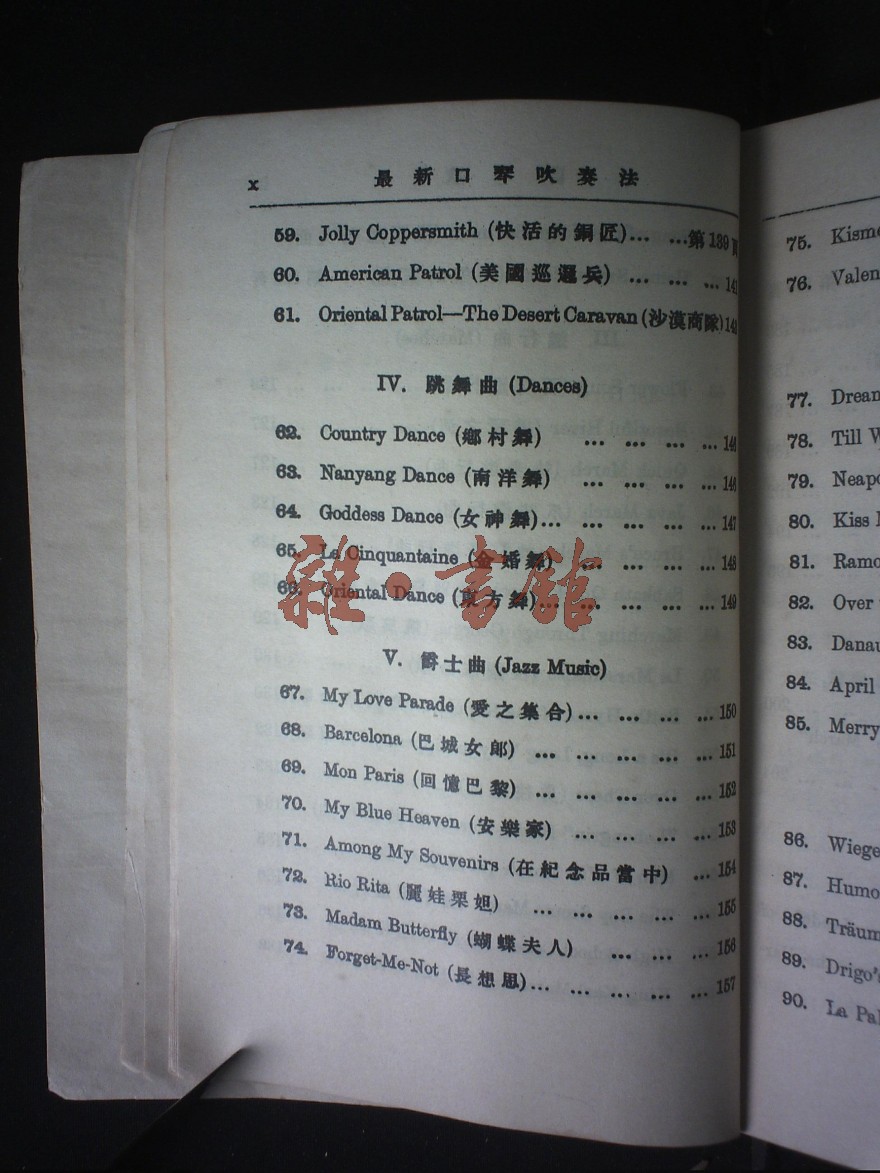 x 最新口琴吹奏法
59. Jolly Coppersmith (快活的銅匠)... ...第139頁
60. American Patrol (美國巡邏兵) ... ... ... 141
61. Oriental Patrol—The Desert Caravan (沙漠商隊) 143
IV. 跳舞曲 (Dances)
62. Country Dance (鄉村舞) ... ... ... ... 146
63. Nanyang Dance (南洋舞) ... ... ... ... 146
64. Goddess Dance (女神舞)... ... ... ... ... 147
65. La Cinquantaine (金婚舞) ... ... ... ... 148
66. Oriental Dance (東方舞)... ... ... ... ... 149
雜·書館
V. 爵士曲 (Jazz Music)
67. My Love Parade (愛之集合)... ... ... ... 150
68. Barcelona (巴城女郎) ... ... ... ... ... 151
69. Mon Paris (回憶巴黎) ... ... ... ... ... 152
70. My Blue Heaven (安樂家) ... ... ... ... 153
71. Among My Souvenirs (在紀念品當中) ... 154
72. Rio Rita (麗娃栗妲) ... ... ... ... ... 155
73. Madam Butterfly (蝴蝶夫人) ... ... ... 156
74. Forget-Me-Not (長想思)... ... ... ... ... 157
75. Kisme
76. Valen
77. Drean
78. Till W
79. Neapo
80. Kiss
81. Ramo
82. Over
83. Danau
84. April
85. Merry
86. Wiege
87. Humo
88. Träum
89. Drigo's
90. La Pal